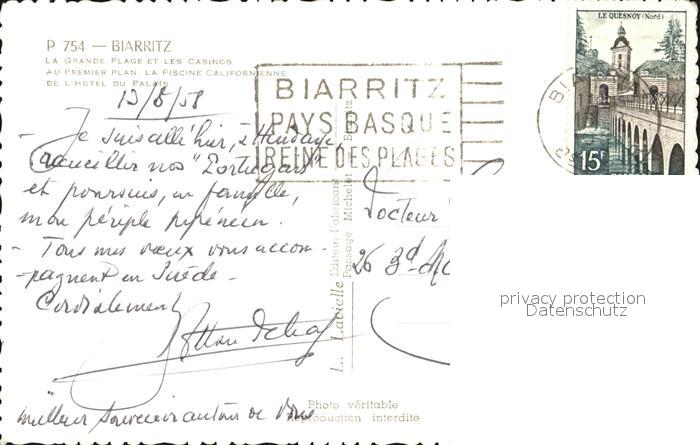 P 754 — BIARRITZ
LA GRANDE PLAGE ET LES CASINOS
AU PREMIER PLAN. LA PISCINE CALIFORNIENNE
DE L'HÔTEL DU PALAIS
13/8/58
- Je suis allé hier, à Hendaye,
accueillir nos "Portugais"
et poursuis, en famille,
mon périple pyrénéen.
- Tous mes vœux vous accom-
-pagnent en Suède -
Cordialement
meilleur souvenir autour de Vous
BIARRITZ
PAYS BASQUE
REINE DES PLAGES
LE QUESNOY (Nord)
15F
Docteur
26 Bd
L. Labielle Éditeur Fabricant
Passage Michelet Biarritz
Photo véritable
Reproduction interdite
privacy protection
Datenschutz